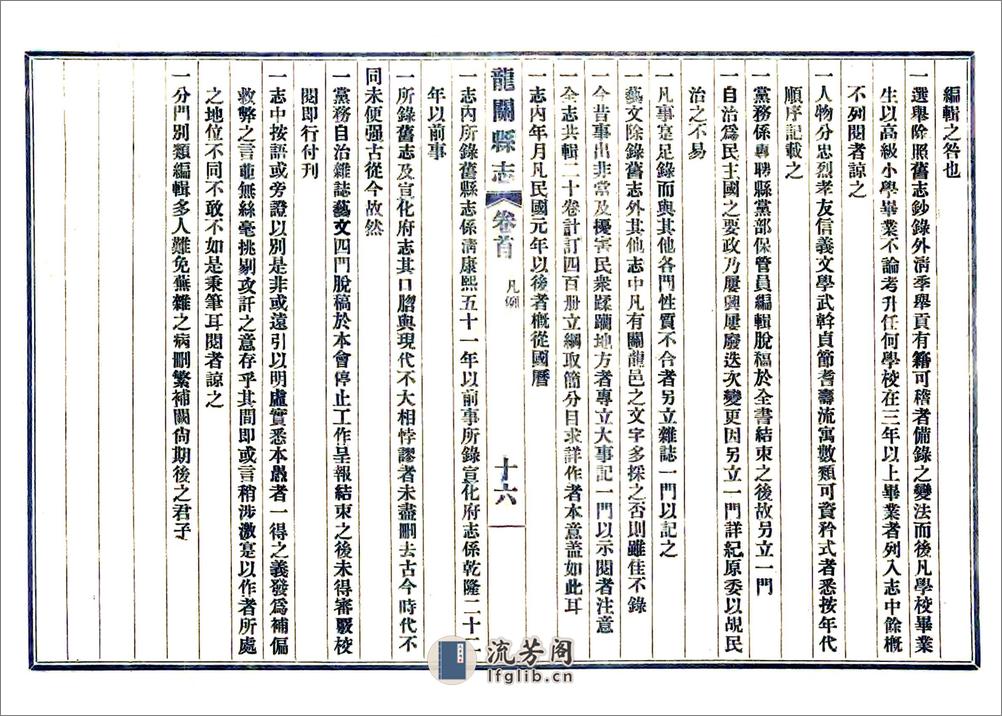 編輯之咎也
一選舉除照舊志鈔錄外清季舉貢有籍可稽者備錄之變法而後凡學校畢業
生以高級小學畢業不論考升任何學校在三年以上畢業者列入志中餘概
不列閱者諒之
一人物分忠烈孝友信義文學武幹貞節耆壽流寓數類可資矜式者悉按年代
順序記載之
一黨務係專聘縣黨部保管員編輯脫稿於全書結束之後故另立一門
一自治為民主國之要政乃屢興屢廢迭次變更因另立一門詳紀原委以覘民
治之不易
一凡事寔足錄而與其他各門性質不合者另立雜誌一門以記之
一藝文除錄舊志外其他志中凡有關龍邑之文字多採之否則雖佳不錄
一今昔事出非常及擾害民衆蹂躪地方者專立大事記一門以示閱者注意
一全志共輯二十卷計訂四百册立綱取簡分目求詳作者本意蓋如此耳
一志內年月凡民國元年以後者概從國曆
龍關縣志 卷首 凡例 十六
一志內所錄舊縣志係淸康熙五十一年以前事所錄宣化府志係乾隆二十二
年以前事
一所錄舊志及宣化府志其口脗與現代不大相悖謬者未盡刪去古今時代不
同未便强古從今故然
一黨務自治雜誌藝文四門脫稿於本會停止工作呈報結束之後未得審覈校
閱即行付刊
一志中按語或旁證以別是非或遠引以明虛實悉本愚者一得之義發為補偏
救弊之言並無絲毫挑剔攻訐之意存乎其間即或言稍涉激寔以作者所處
之地位不同不敢不如是秉筆耳閱者諒之
一分門別類編輯多人難免蕪雜之病刪繁補闕尙期後之君子
流芳阁
lfglib.cn